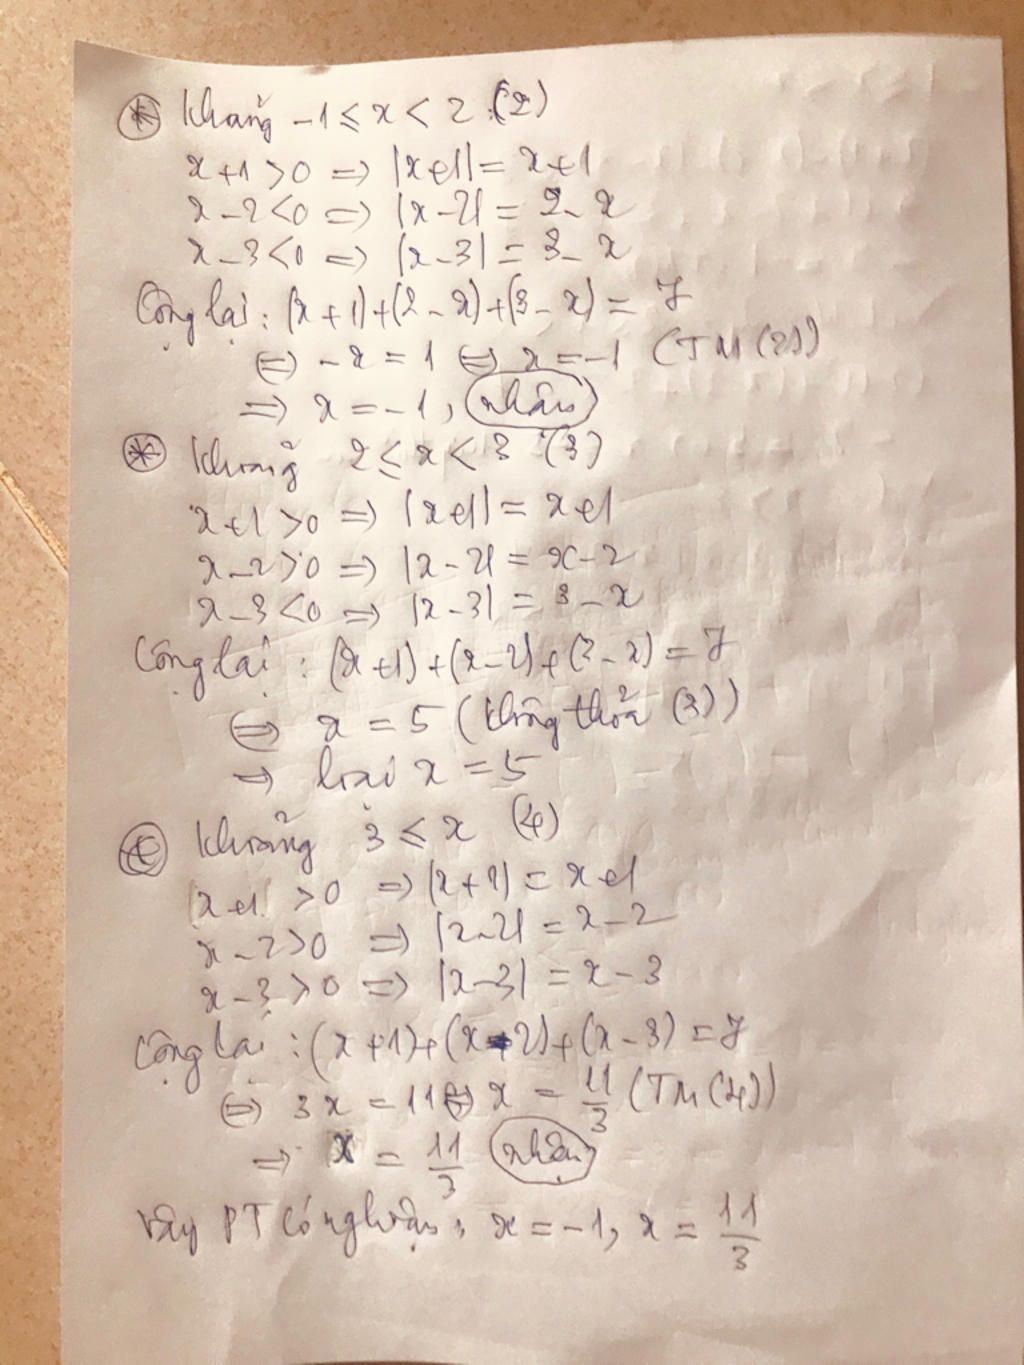 Khoảng -1 ≤ x < 2 (2)
x+1 > 0 => |x+1| = x+1
x-2 < 0 => |x-2| = 2-x
x-3 < 0 => |x-3| = 3-x
Cộng lại: (x+1)+(2-x)+(3-x) = 7
<=> -x = 1 <=> x = -1 (TM (2))
=> x = -1, nhận
Khoảng 2 ≤ x < 3 (3)
x+1 > 0 => |x+1| = x+1
x-2 > 0 => |x-2| = x-2
x-3 < 0 => |x-3| = 3-x
Cộng lại: (x+1)+(x-2)+(3-x) = 7
<=> x = 5 (không thỏa (3))
→ loại x = 5
Khoảng 3 ≤ x (4)
x+1 > 0 => |x+1| = x+1
x-2 > 0 => |x-2| = x-2
x-3 > 0 => |x-3| = x-3
Cộng lại: (x+1)+(x-2)+(x-3) = 7
<=> 3x = 11 <=> x = 11/3 (TM (4))
=> x = 11/3 nhận
Vậy PT có nghiệm: x = -1, x = 11/3